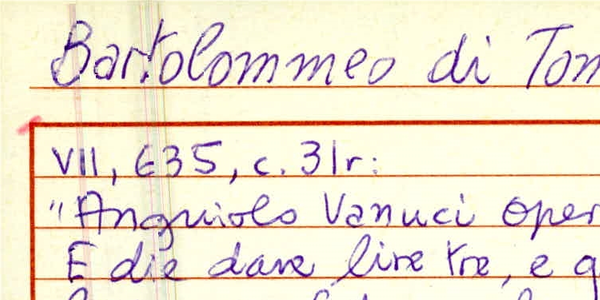 Bartolommeo di Tom
VII, 635, c. 31r:
"Angniolo Vanuci oper
E die dare lire tre, e q